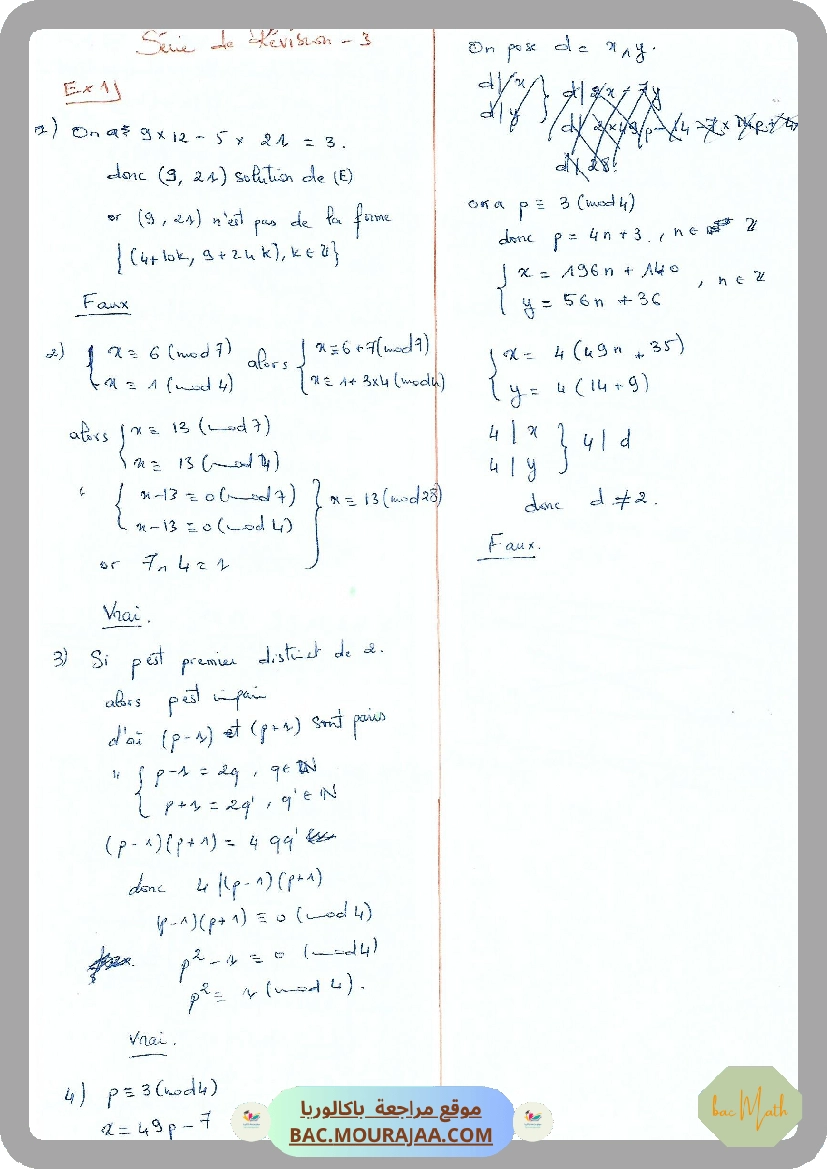 Série de Révision - 3
Ex 1)
1) On a : 9 × 12 - 5 × 21 = 3.
donc (9, 21) solution de (E)
or (9, 21) n'est pas de la forme
{(4+10k, 9+24k), k ∈ Z}
Faux
2) { x ≡ 6 (mod 7) alors { x ≡ 6+7 (mod 7)
x ≡ 1 (mod 4) x ≡ 1+3×4 (mod 4)
alors { x ≡ 13 (mod 7)
x ≡ 13 (mod 4)
" { x-13 ≡ 0 (mod 7) } x ≡ 13 (mod 28)
x-13 ≡ 0 (mod 4)
or 7 ∧ 4 = 1
Vrai.
3) Si p est premier distinct de 2.
alors p est impair
d'où (p-1) et (p+1) sont pairs
" { p-1 = 2q, q ∈ N
p+1 = 2q', q' ∈ N
(p-1)(p+1) = 4 qq'
donc 4 | (p-1)(p+1)
(p-1)(p+1) ≡ 0 (mod 4)
p² - 1 ≡ 0 (mod 4)
p² ≡ 1 (mod 4).
Vrai.
4) p ≡ 3 (mod 4)
x = 49p - 7
On pose d = x ∧ y.
d | x } d | 2x - 7y
d | y
d | 28!
on a p ≡ 3 (mod 4)
donc p = 4n + 3, n ∈ Z
{ x = 196n + 140, n ∈ Z
y = 56n + 36
{ x = 4 (49n + 35)
y = 4 (14 + 9)
4 | x } 4 | d
4 | y
donc d ≠ 2.
Faux.
موقع مراجعة باكالوريا
BAC.MOURAJAA.COM
bac Math